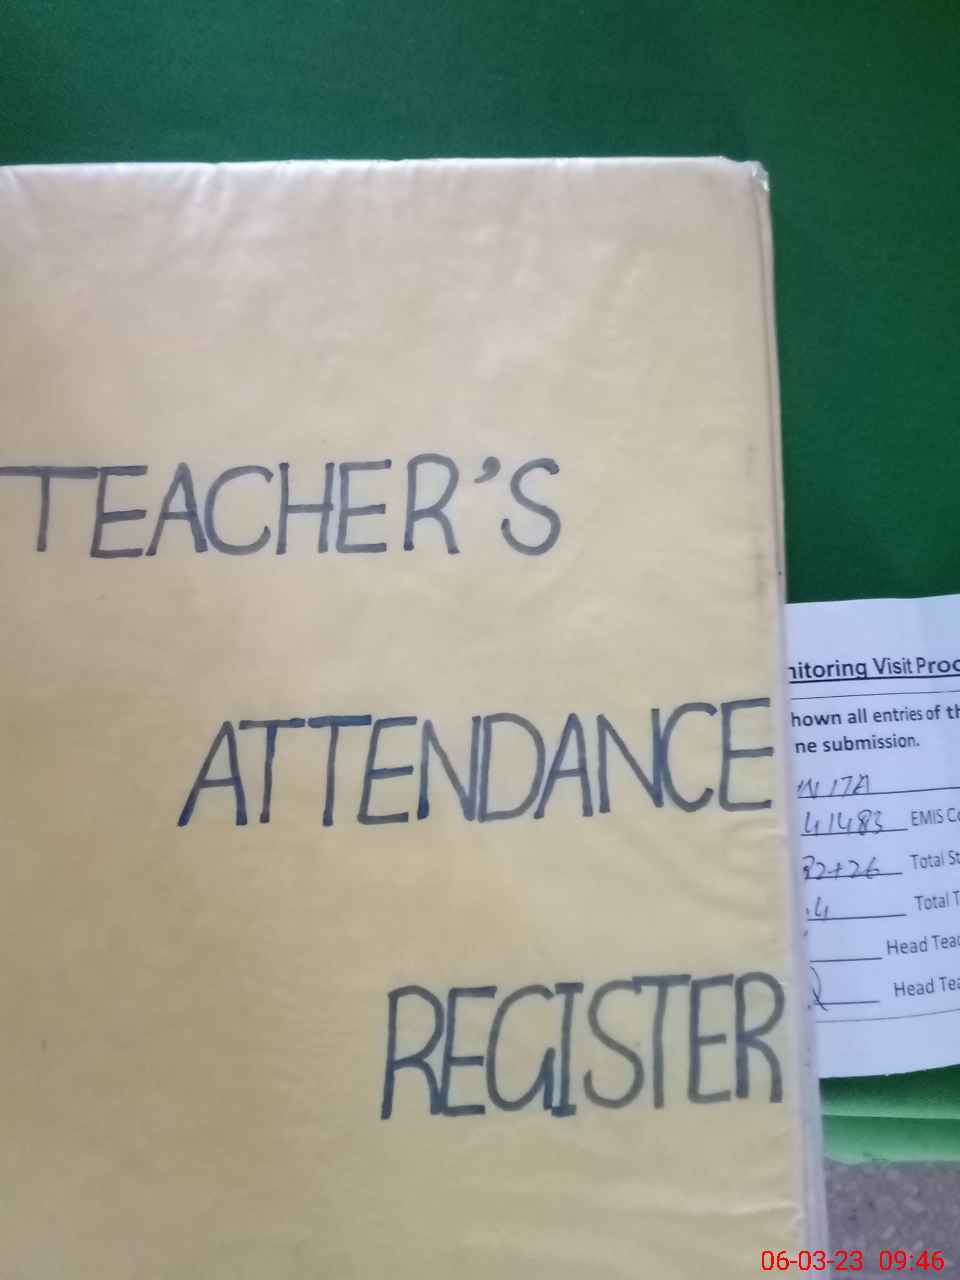 TEACHER'S
ATTENDANCE
REGISTER
nitoring Visit Proc
hown all entries of th
ne submission.
41483 EMIS Co
32+26 Total St
4 Total T
Head Teac
Head Tea
06-03-23 09:46